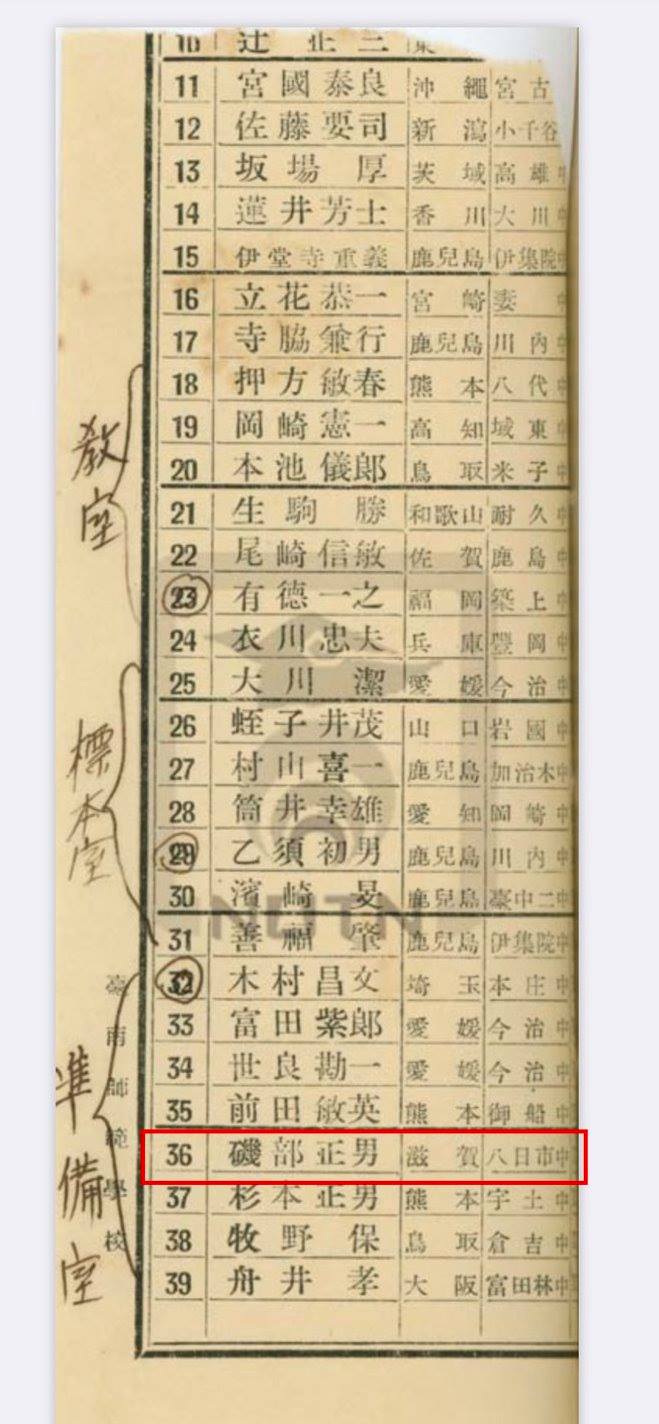 10 辻 正二
11 宮國泰良 沖繩 宮古
12 佐藤要司 新潟 小千谷
13 坂場厚 茨城 高雄中
14 蓮井芳士 香川 大川中
15 伊堂寺重義 鹿兒島 伊集院中
16 立花恭一 宮崎 妻中
17 寺脇兼行 鹿兒島 川内中
18 押方敏春 熊本 八代中
19 岡崎憲一 高知 城東中
20 本池儀郎 鳥取 米子中
21 生駒勝 和歌山 耐久中
22 尾崎信敏 佐賀 鹿島中
23 有德一之 福岡 築上中
24 衣川忠夫 兵庫 豐岡中
25 大川潔 愛媛 今治中
26 蛭子井茂 山口 岩國中
27 村山喜一 鹿兒島 加治木中
28 筒井幸雄 愛知 岡崎中
29 乙須初男 鹿兒島 川内中
30 濱崎旻 鹿兒島 臺中二中
31 善福肇 鹿兒島 伊集院中
32 木村昌文 埼玉 本庄中
33 富田紫郎 愛媛 今治中
34 世良勘一 愛媛 今治中
35 前田敏英 熊本 御船中
36 磯部正男 滋賀 八日市中
37 杉本正男 熊本 宇土中
38 牧野保 鳥取 倉吉中
39 舟井孝 大阪 富田林中
教室
標本室
準備室
臺南師範學校
NUTN